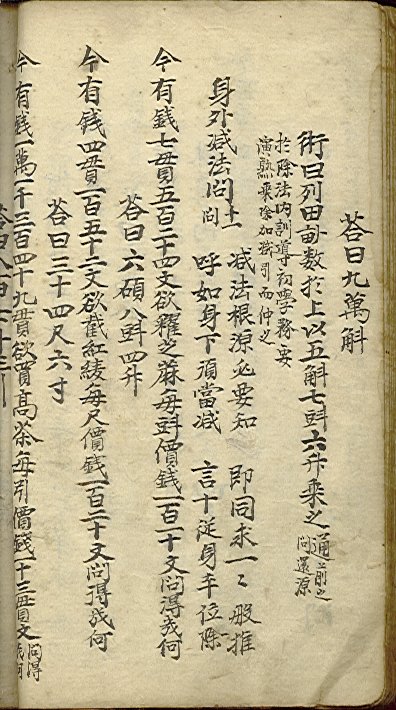 答曰九萬斛
術曰列田畝數於上以五斛七㪷六升乘之通上前之問還源
於除法內訓導初學務要
演熟乘除加減引而伸之
身外減法問十一問
減法根源必要知 即同求一〻般推
呼如身下須當減 言十從身本位除
今有錢七貫五百二十四文欲糴芝蔴每㪷價錢一百一十文問得幾何
答曰六碩八㪷四升
今有錢四貫一百五十二文欲截紅綾每尺價錢一百二十文問得幾何
答曰三十四尺六寸
今有錢一萬一千三百四十九貫欲買高茶每引價錢一十三貫文問得幾何
答曰八百七十三引